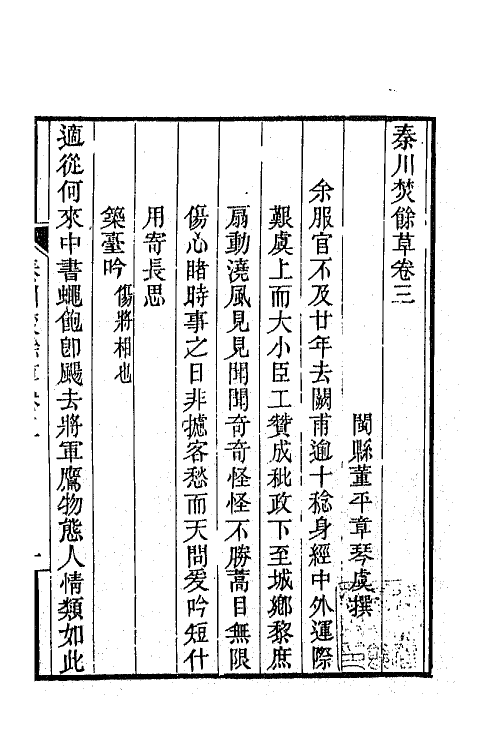 秦川焚餘草卷三
閩縣董平章琴虞撰
余服官不及廿年去闕甫逾十稔身經中外運際
艱虞上而大小臣工贊成秕政下至城鄉黎庶
扇動澆風見見聞聞奇奇怪怪不勝蒿目無限
傷心睹時事之日非攄客愁而天問爰吟短什
用寄長思
築臺吟 傷將相也
適從何來中書蠅飽卽颺去將軍鷹物態人情類如此